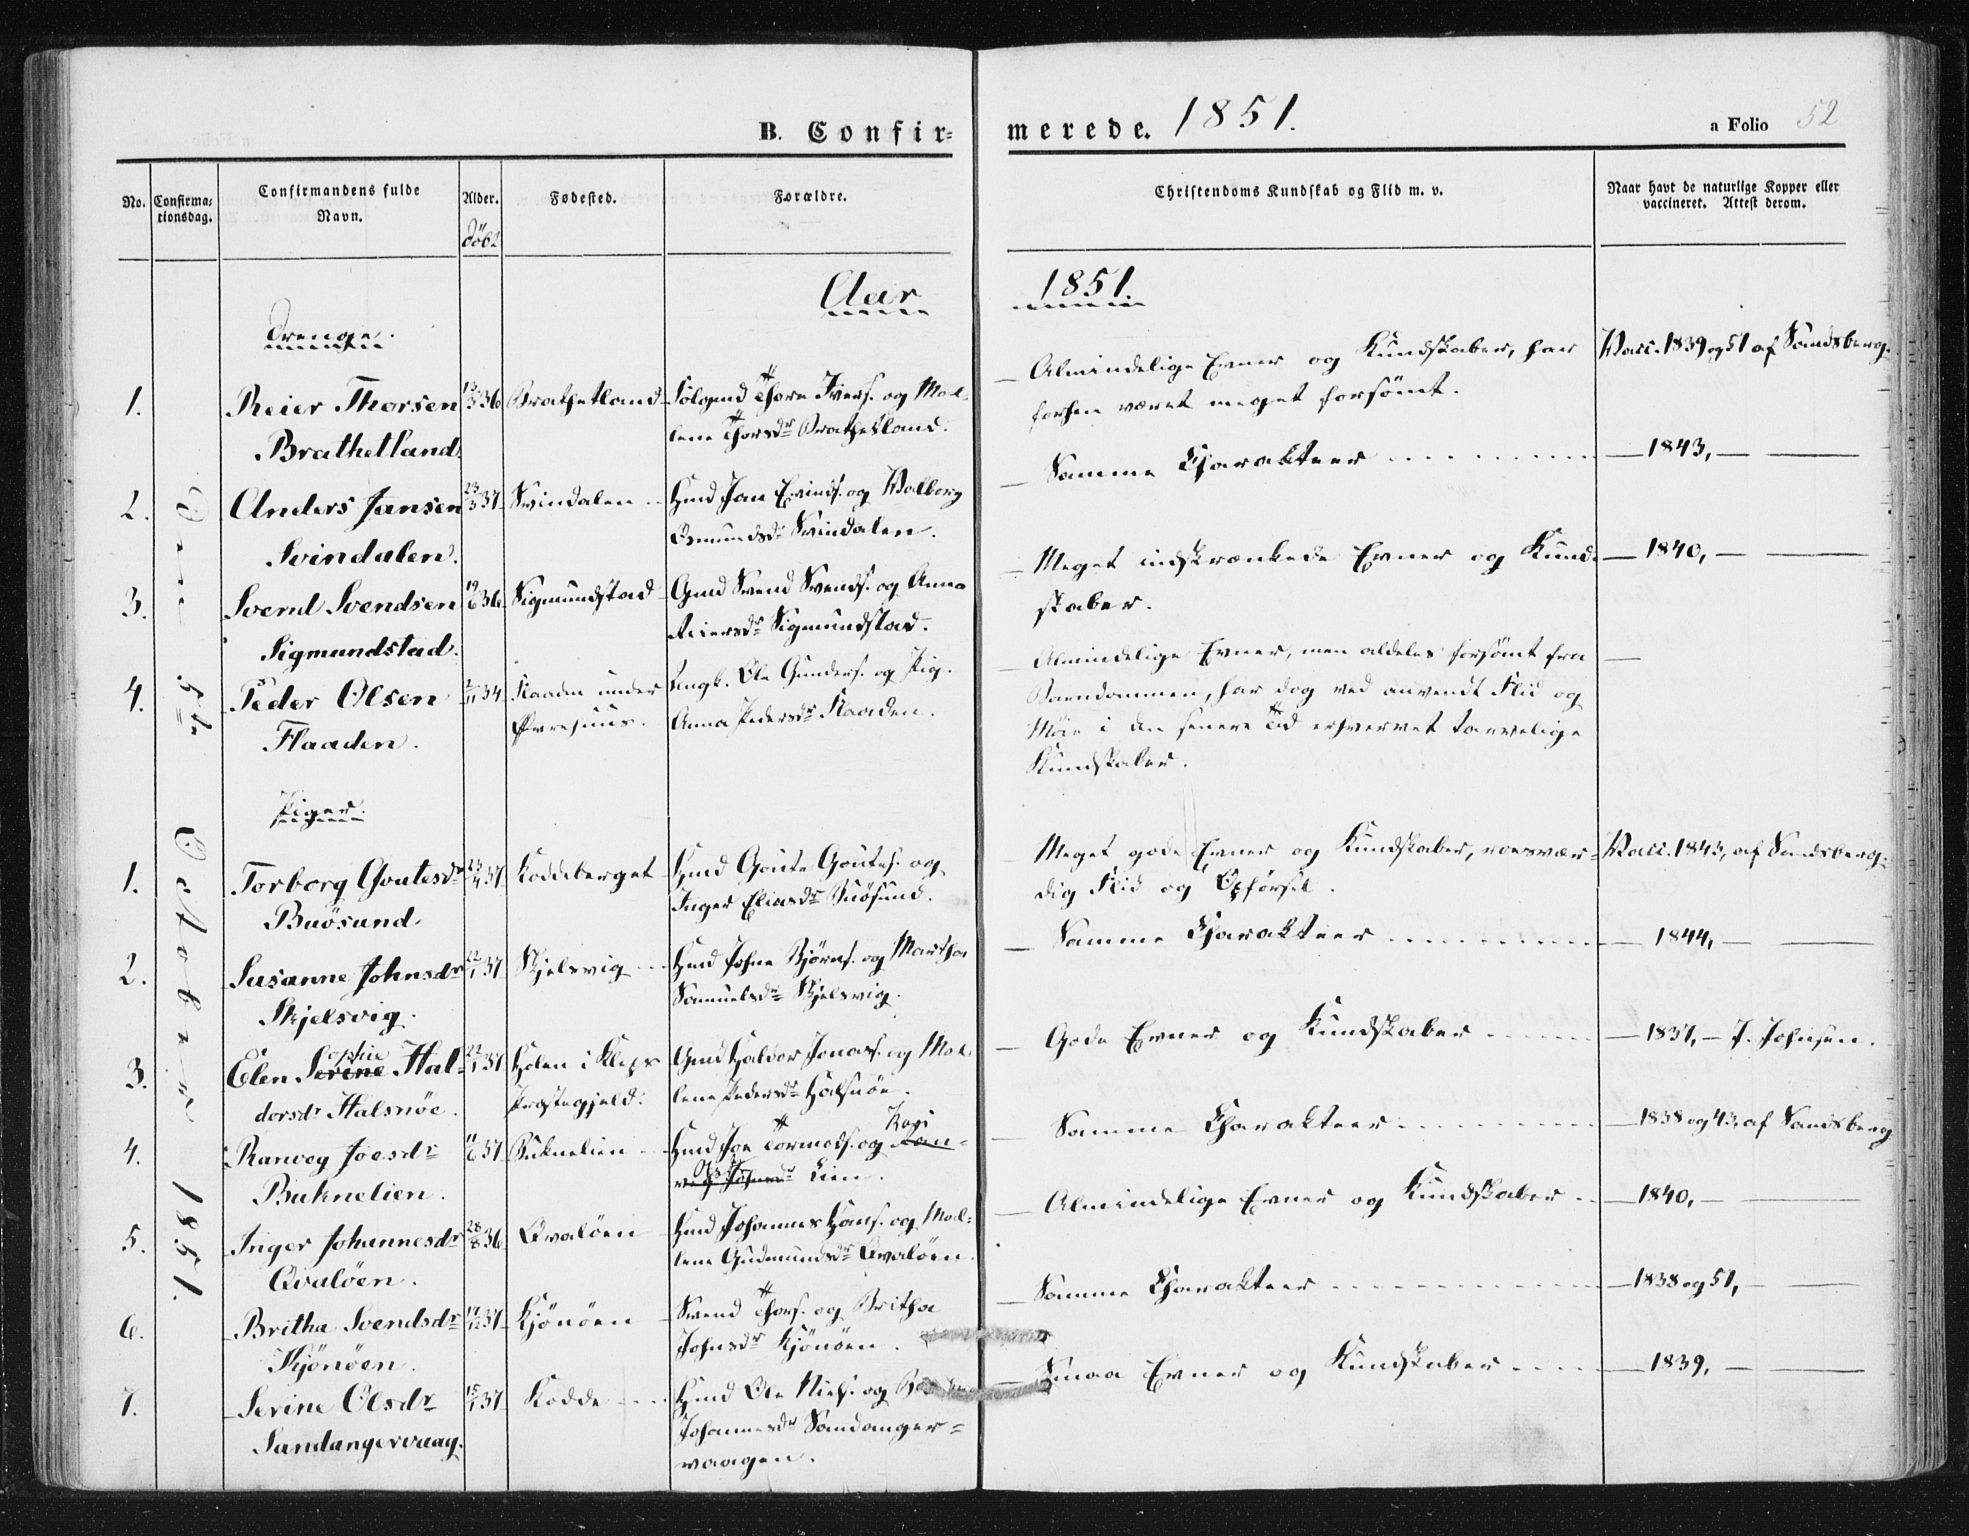 B. Confir-
merede. 1851.
a Folio 52
No.
Confirma-
tionsdag.
Confirmandens fulde
Navn.
Alder.
döbt
Fødested.
Forældre.
Christendoms Kundskab og Flid m. v.
Naar havt de naturlige Kopper eller
vaccineret. Attest derom.
Aar 1851.
Den 5te October 1851.
Drenge.
1. Reier Thorsen
Brathetland.
13/3 36
Brathetland
Thore Ivers. og Mal-
lene Thorsdr Brathetland.
Almindelige Evner og Kundskaber, har
forhen været meget forsömt.
Vacc. 1839 og 51 af Sandsberg.
2. Anders Jansen
Svindalen.
23/3 37
Svindalen
Hmd Jan Evinds. og Valborg
Osmundsdr Svindalen.
Samme Charakteer
1843,
3. Svend Svendsen
Sigmundstad.
19/6 36
Sigmundstad
Gmd Svend Svends. og Anna
Reiersdr Sigmundstad.
Meget indskrænkede Evner og Kund-
skaber.
1840,
4. Peder Olsen
Flaaden.
2/11 34
Flaaden under
Ungk. Ole Gunders. og Pig.
Anna Pedersdr Flaaden.
Almindelige Evner, men aldeles forsömt fra
Barndommen, har dog ved anvendt Flid og
Möie i den senere Tid erhvervet tarvelige
Kundskaber.
Piger.
1. Torborg Goutesdr
Buösund
23/4 37
Koddeberget
Hmd Goute Goutes. og
Inger Eliasdr Buösund.
Meget gode Evner og Kundskaber, roesvær-
dig Flid og Opförsel.
Vacc. 1843, af Sandsberg.
2. Susanne Johnsdr
Skjelsvig.
22/1 37
Skjelsvig
Hmd Johne Björns. og Martha
Samuelsdr Skjelsvig.
Samme Charakteer
1844,
3. Elen Serine Hal-
ophie
dorsdr Halsnöe.
22/1 37
Holen i Klep
Præstegjeld.
Gmd Haldor Jonas. og Mal-
lene Pedersdr Halsnöe.
Gode Evner og Kundskaber
1837, J. Johnsen.
4. Ranveg Joesdr
Buknelien.
11/6 37
Buknelien
Hmd Joe Tormods. og Ran-
Kari
Lien.
Samme Charakteer
1838 og 43, af Sandsberg
5. Inger Johannesdr
Qvalöen.
28/8 36
Qvalöen
Hmd Johannes Hans. og Mal-
lene Gudmundsdr Qvalöen.
Almindelige Evner og Kundskaber
1840,
6. Britha Svendsdr
Kjönöen.
37
Kjönöen
Svend Thors. og Britha
Johnsdr Kjönöen.
Samme Charakteer
1838 og 51,
7. Serine Olsdr
Sandangervaag.
15/1 37
Kodde
Hmd Ole Niels. og
Johannesdr Sandanger-
vaagen.
Smaa Evner og Kundskaber
1839,